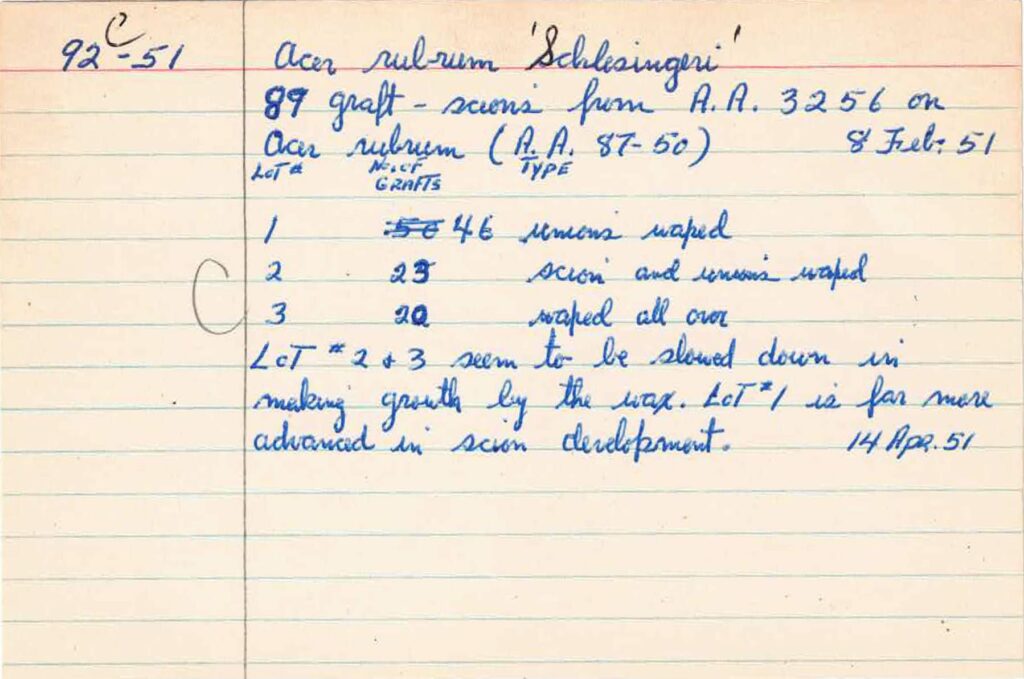 C
92-51 Acer rubrum 'Schlesingeri'
89 graft - scions from A.A. 3256 on
Acer rubrum (A.A. 87-50) 8 Feb. 51
LOT # No. OF GRAFTS TYPE
1 46 unions waxed
2 23 scion and unions waxed
C
3 20 waxed all over
LOT # 2 & 3 seem to be slowed down in
making growth by the wax. LOT #1 is far more
advanced in scion development. 14 Apr. 51